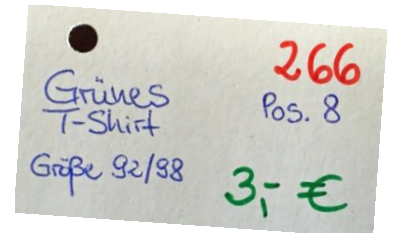 266
Grünes
T-Shirt
Pos. 8
Größe 92/98
3,- €